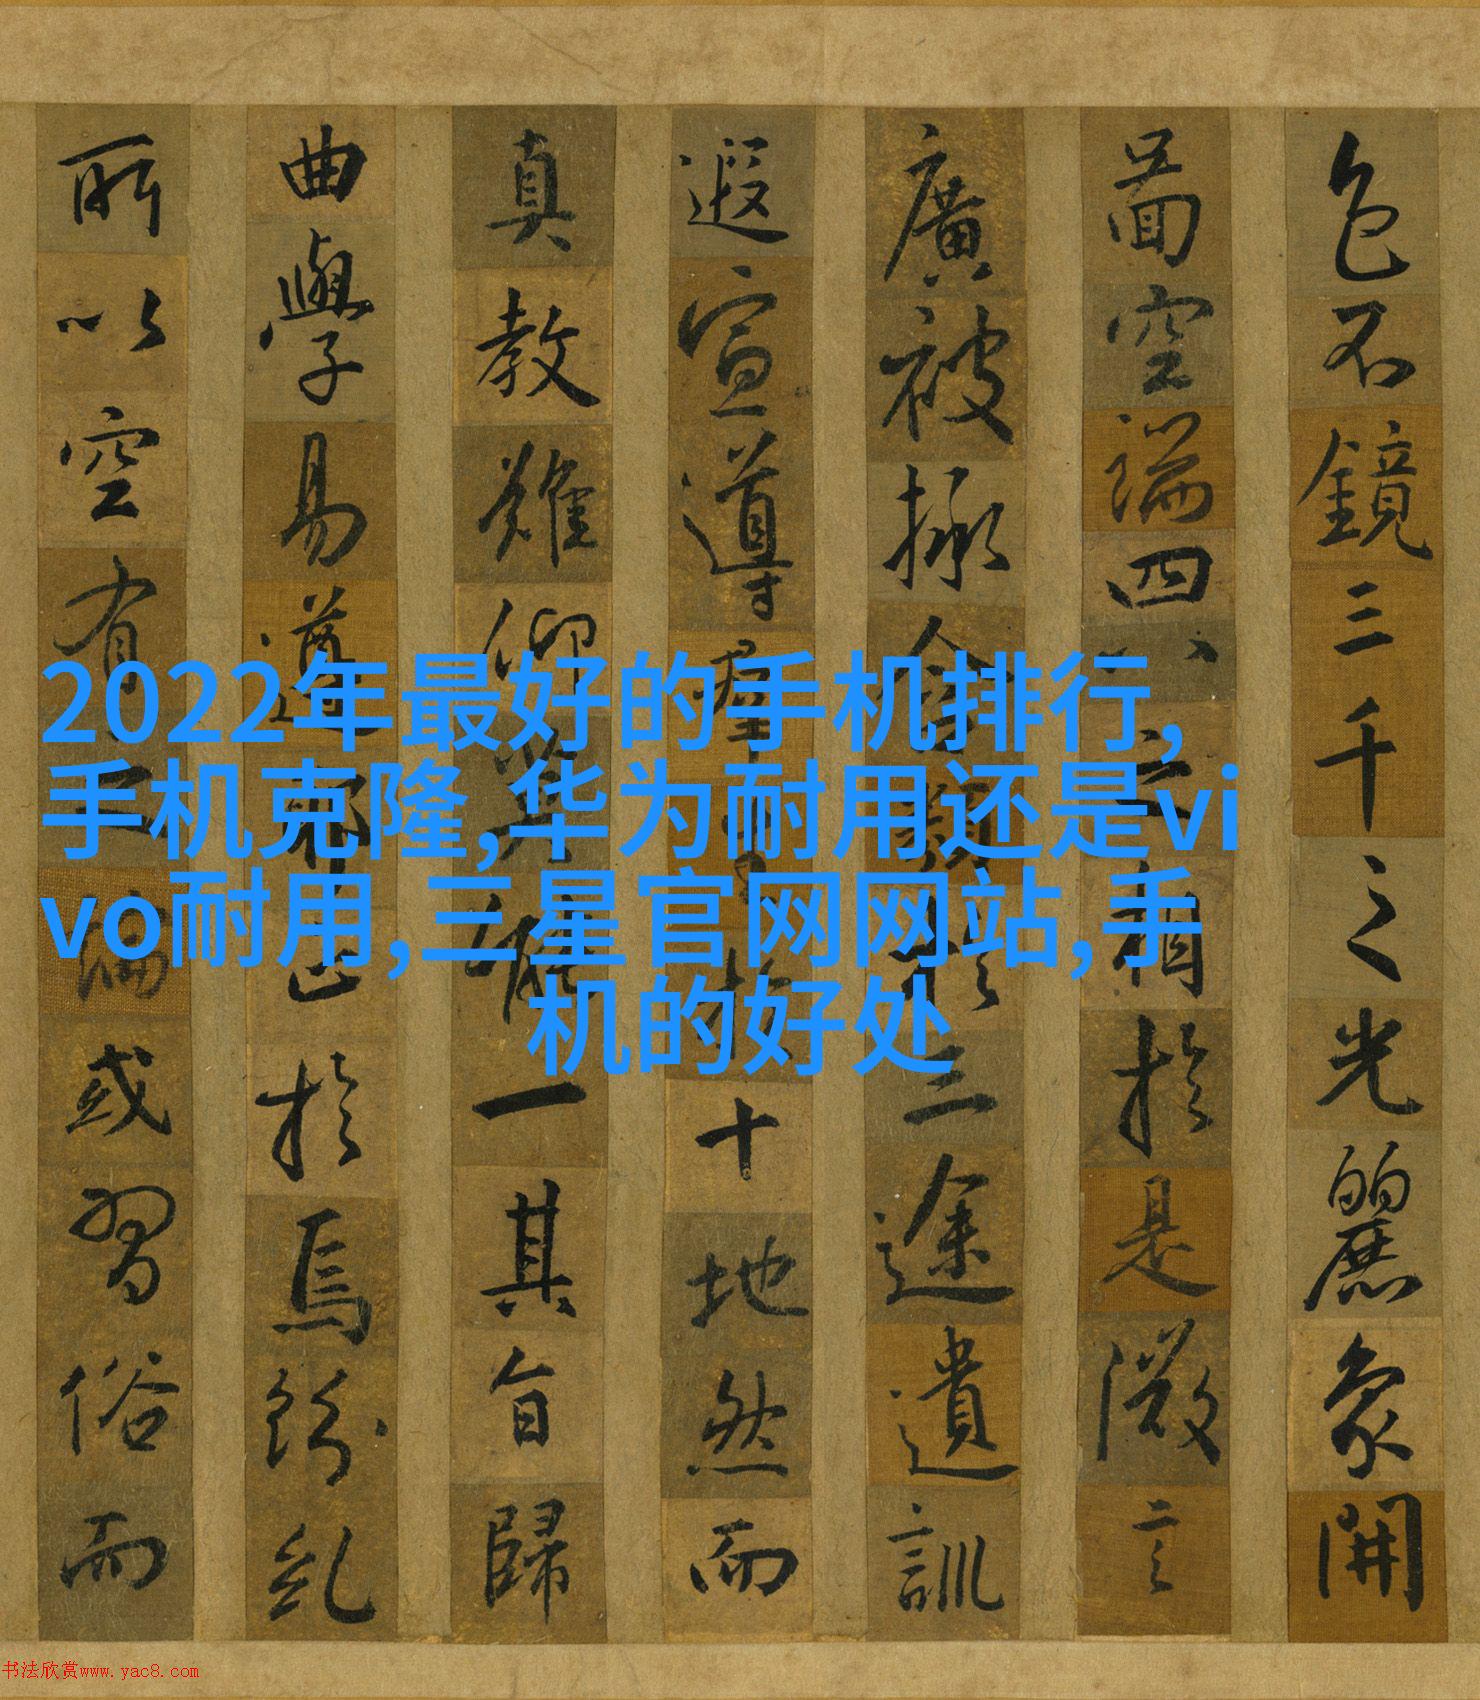 色不鏡三千之光麗象開
圖空端四八之相於是微言
廣被拯含類於三途遺訓
遐宣導群生於十地然而
真教難仰莫能一其旨歸
曲學易遵邪正於焉紛糺
所以空有之論或習俗而
2022年最好的手机排行,
手机克隆,华为耐用还是vi
vo耐用,三星官网网站,手
机的好处
书法欣赏www.yac8.com